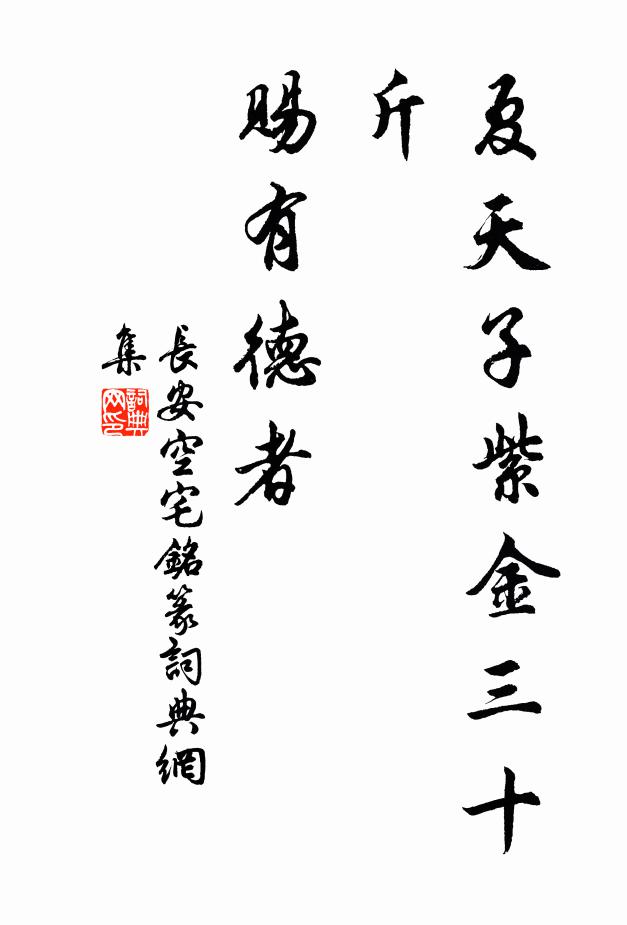 夏天子紫金三十
斤
賜有德者
長安空宅銘篆詞典網
集
詞典
网印